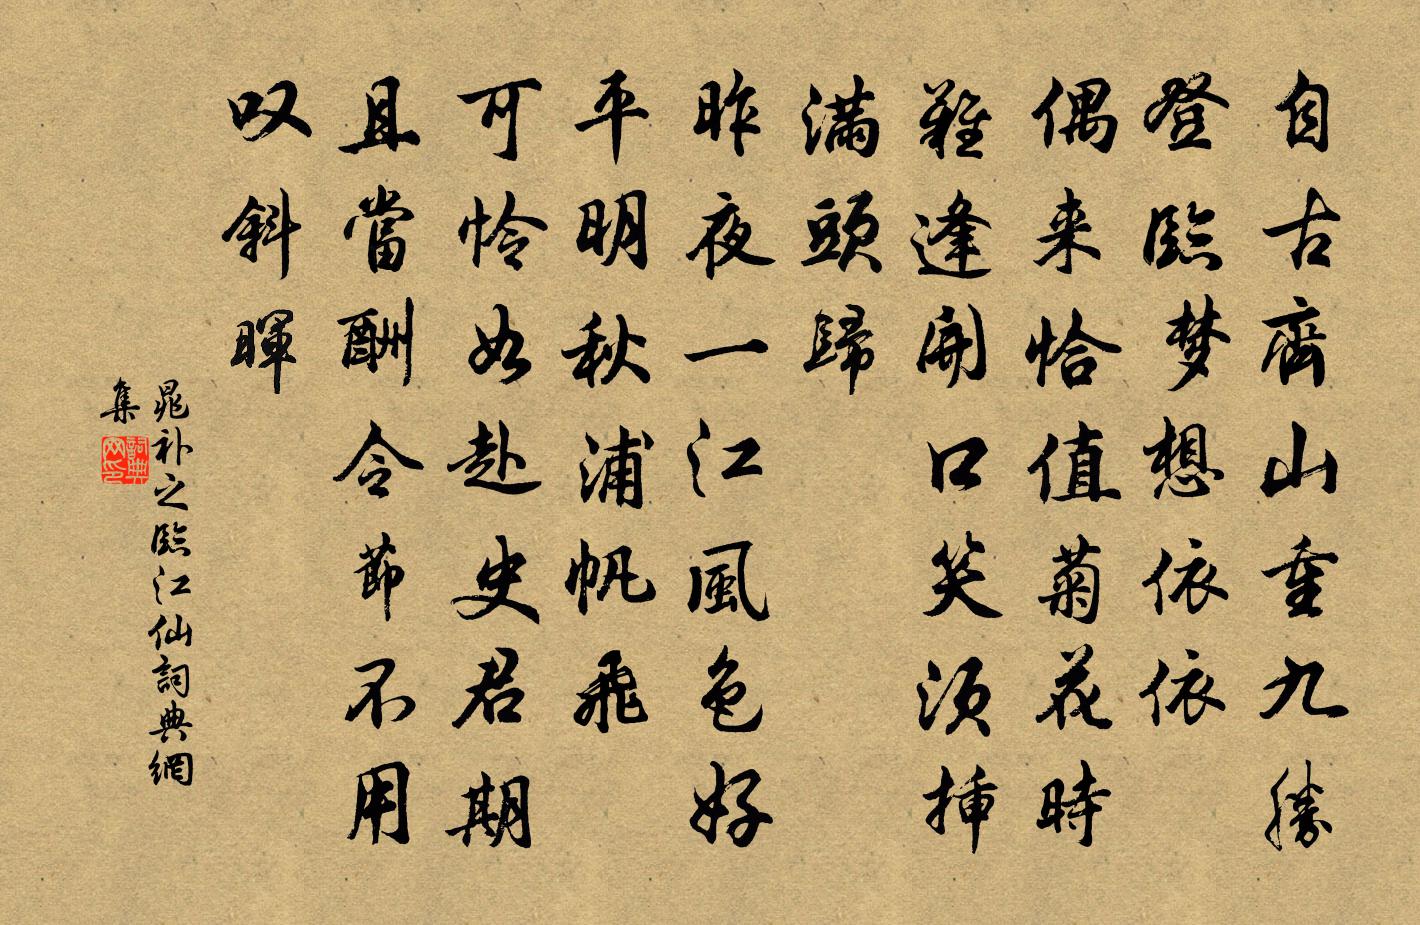 自古齊山重九勝
登臨梦想依依
偶来恰值菊花時
難逢開口笑須挿
滿頭歸
昨夜一江風色好
平明秋浦帆飛
可怜如赴史君期
且當酬令節不用
叹斜暉
晁补之臨江仙詞典網
集
詞典网印